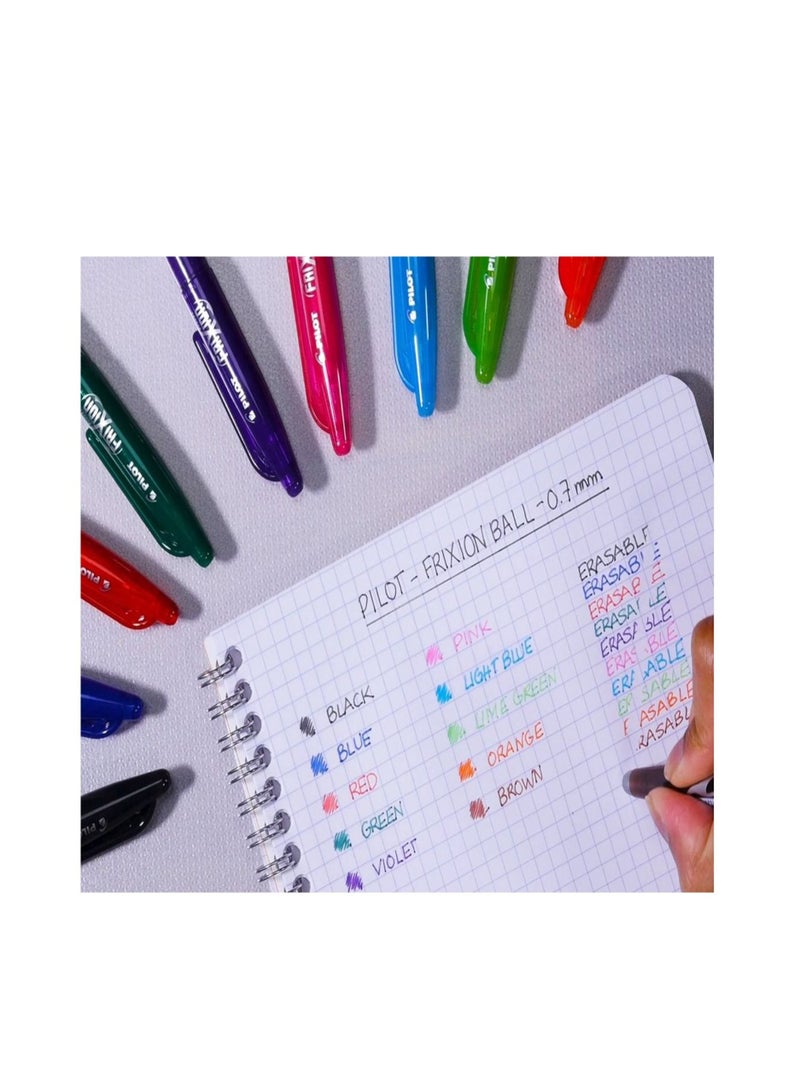 FRIXION PILOT
FRIXION PILOT
FRIX PILOT
PILOT
PI
PILOT
PILOT
PILOT - FRIXION BALL - 0.7mm
BLACK
BLUE
RED
GREEN
VIOLET
PINK
LIGHT BLUE
LIME GREEN
ORANGE
BROWN
ERASABLE
ERASAB E
ERASAB E
ERASA LE
ERASA BLE
ERAS BLE
ERA ABLE
ER SABLE
E ASABLE
RASABL